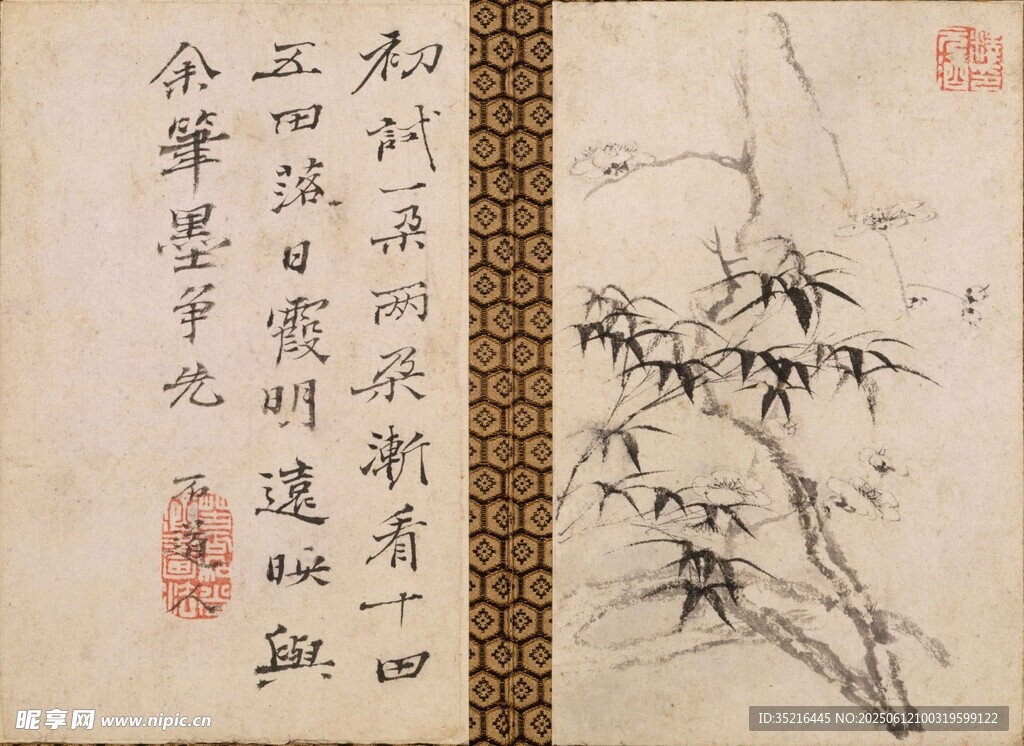 初試一朶兩朶漸看十田
五田落日霞明遠映與
余筆墨争先
石道人
昵享网 www.nipic.cn
ID:35216445 NO:20250612100319599122